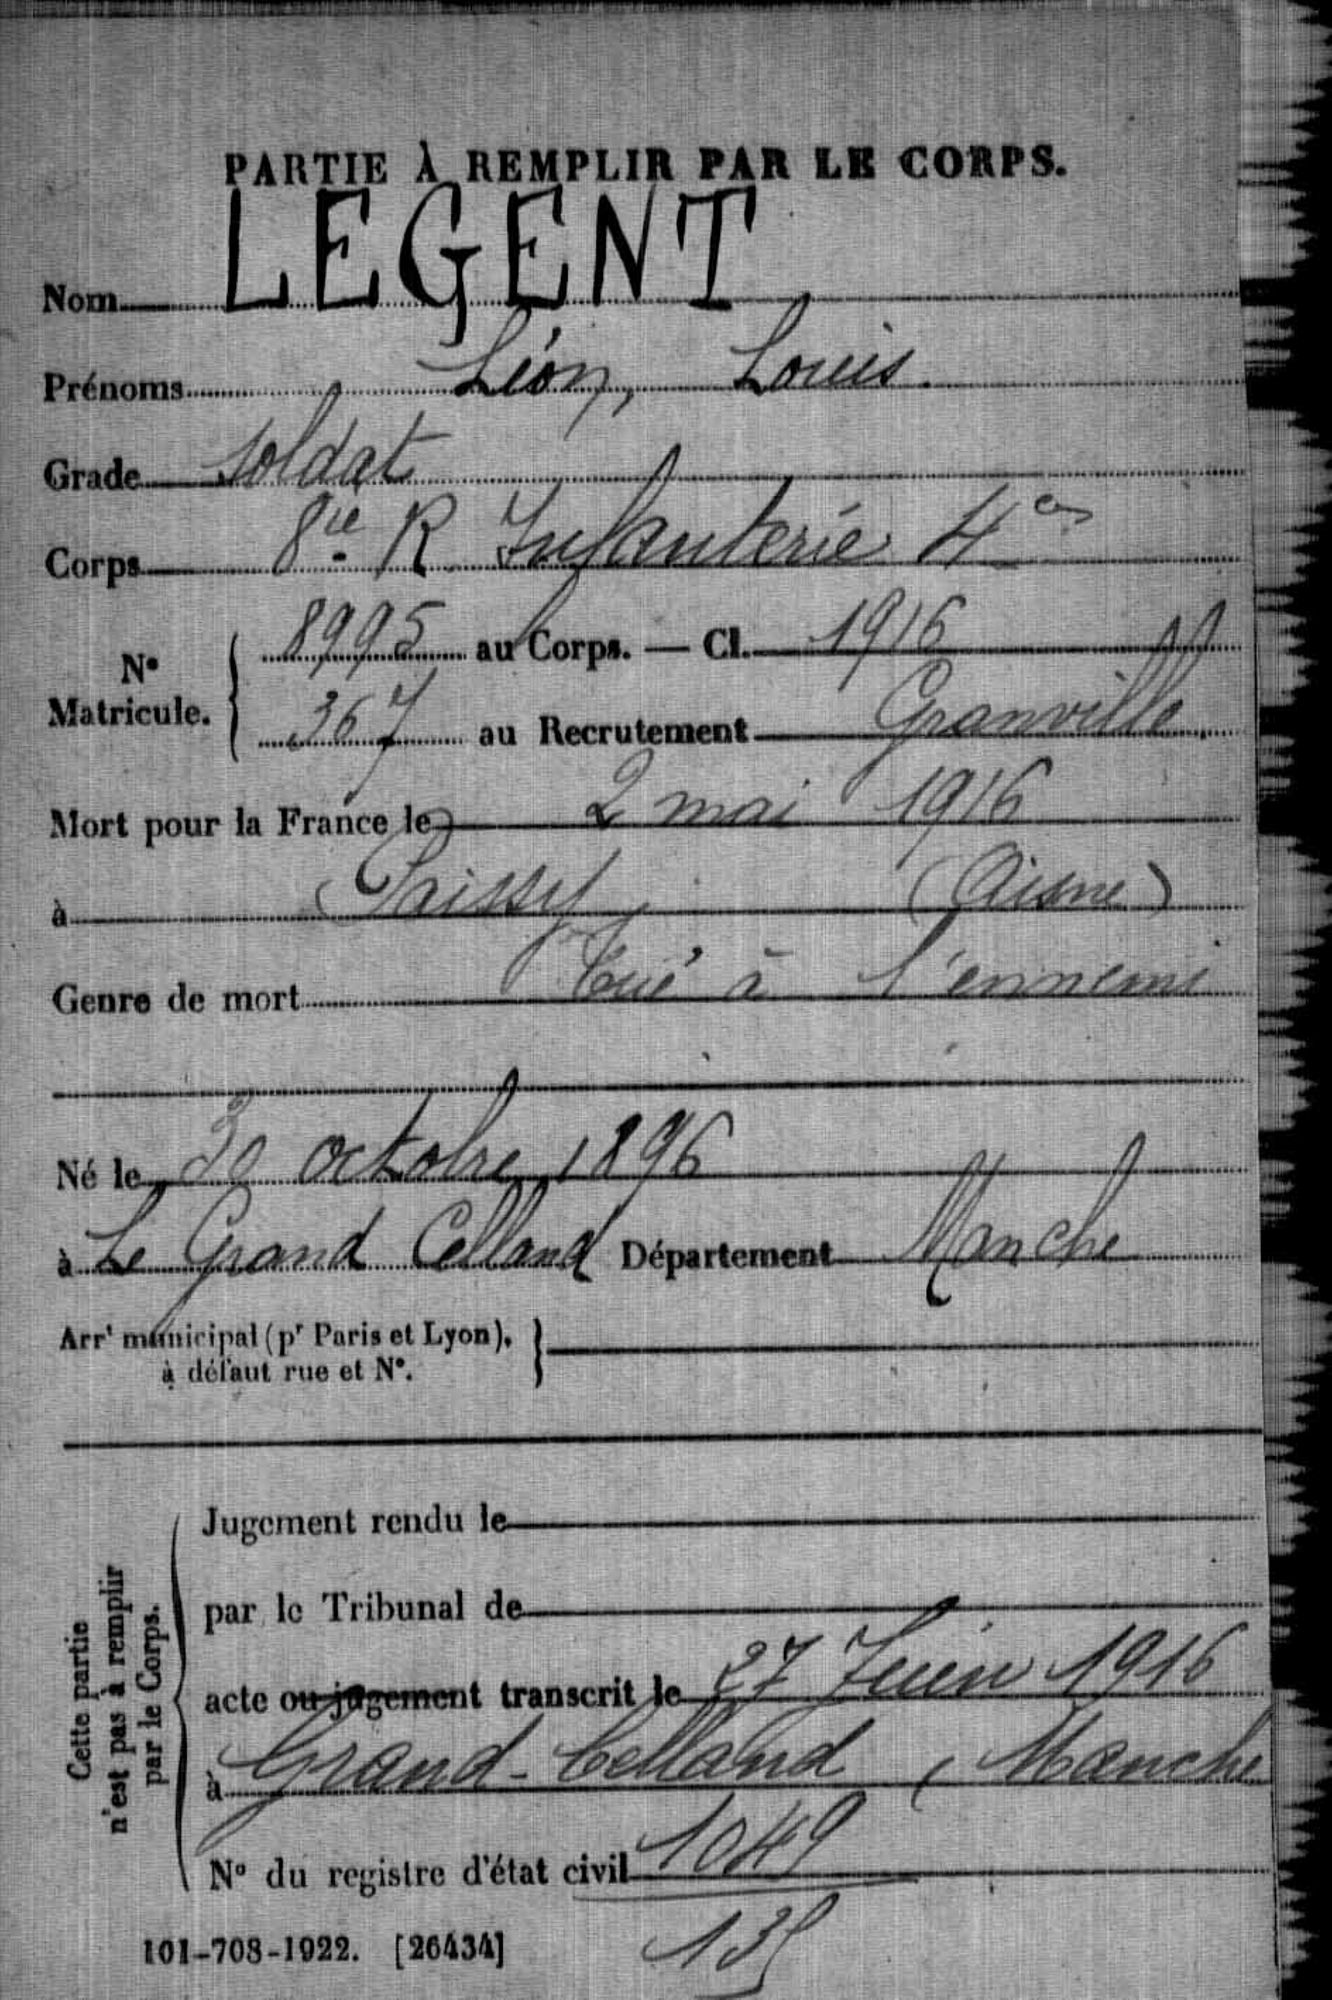 PARTIE À REMPLIR PAR LE CORPS.
Nom LEGENT
Prénoms Léon, Louis.
Grade Soldat
Corps 8ie R Infanterie 4
Nº Matricule. 8995 au Corps. — Cl. 1916
367 au Recrutement Granville
Mort pour la France le 2 mai 1916
à Paissy (Aisne)
Genre de mort Tué à l'ennemi
Né le 30 octobre 1896
à Le Grand Celland Département Manche
Arrt municipal (pr Paris et Lyon),
à défaut rue et Nº.
Cette partie
n'est pas à remplir
par le Corps.
Jugement rendu le
par le Tribunal de
acte ou jugement transcrit le 27 Juin 1916
à Grand-Celland (Manche
Nº du registre d'état civil 1049
135
101-708-1922. [26434]